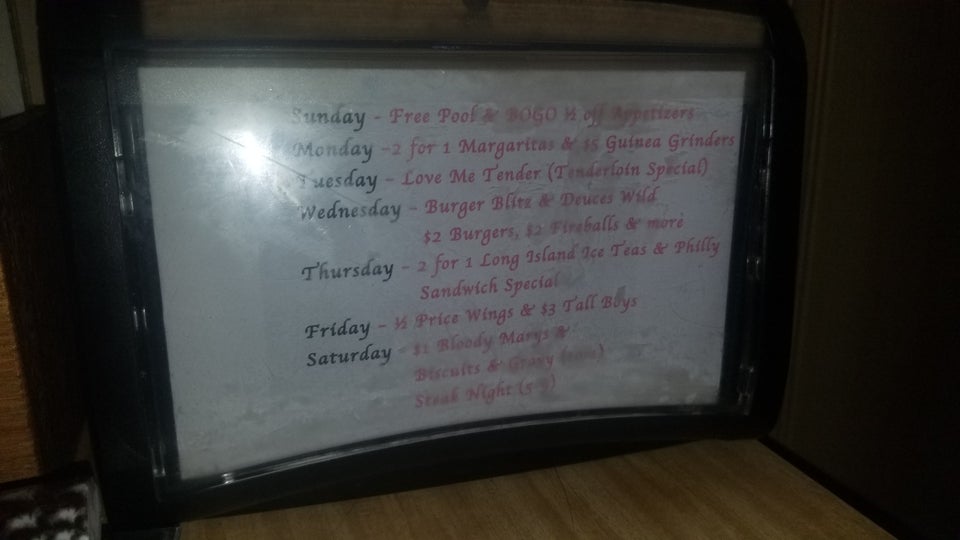 Sunday - Free Pool & BOGO ½ off Appetizers
Monday -2 for 1 Margaritas & $5 Guinea Grinders
Tuesday - Love Me Tender (Tenderloin Special)
Wednesday - Burger Blitz & Deuces Wild
$2 Burgers, $2 Fireballs & more
Thursday - 2 for 1 Long Island Ice Teas & Philly
Sandwich Special
Friday - ½ Price Wings & $3 Tall Boys
Saturday - $1 Bloody Marys &
Biscuits & Gravy
Steak Night